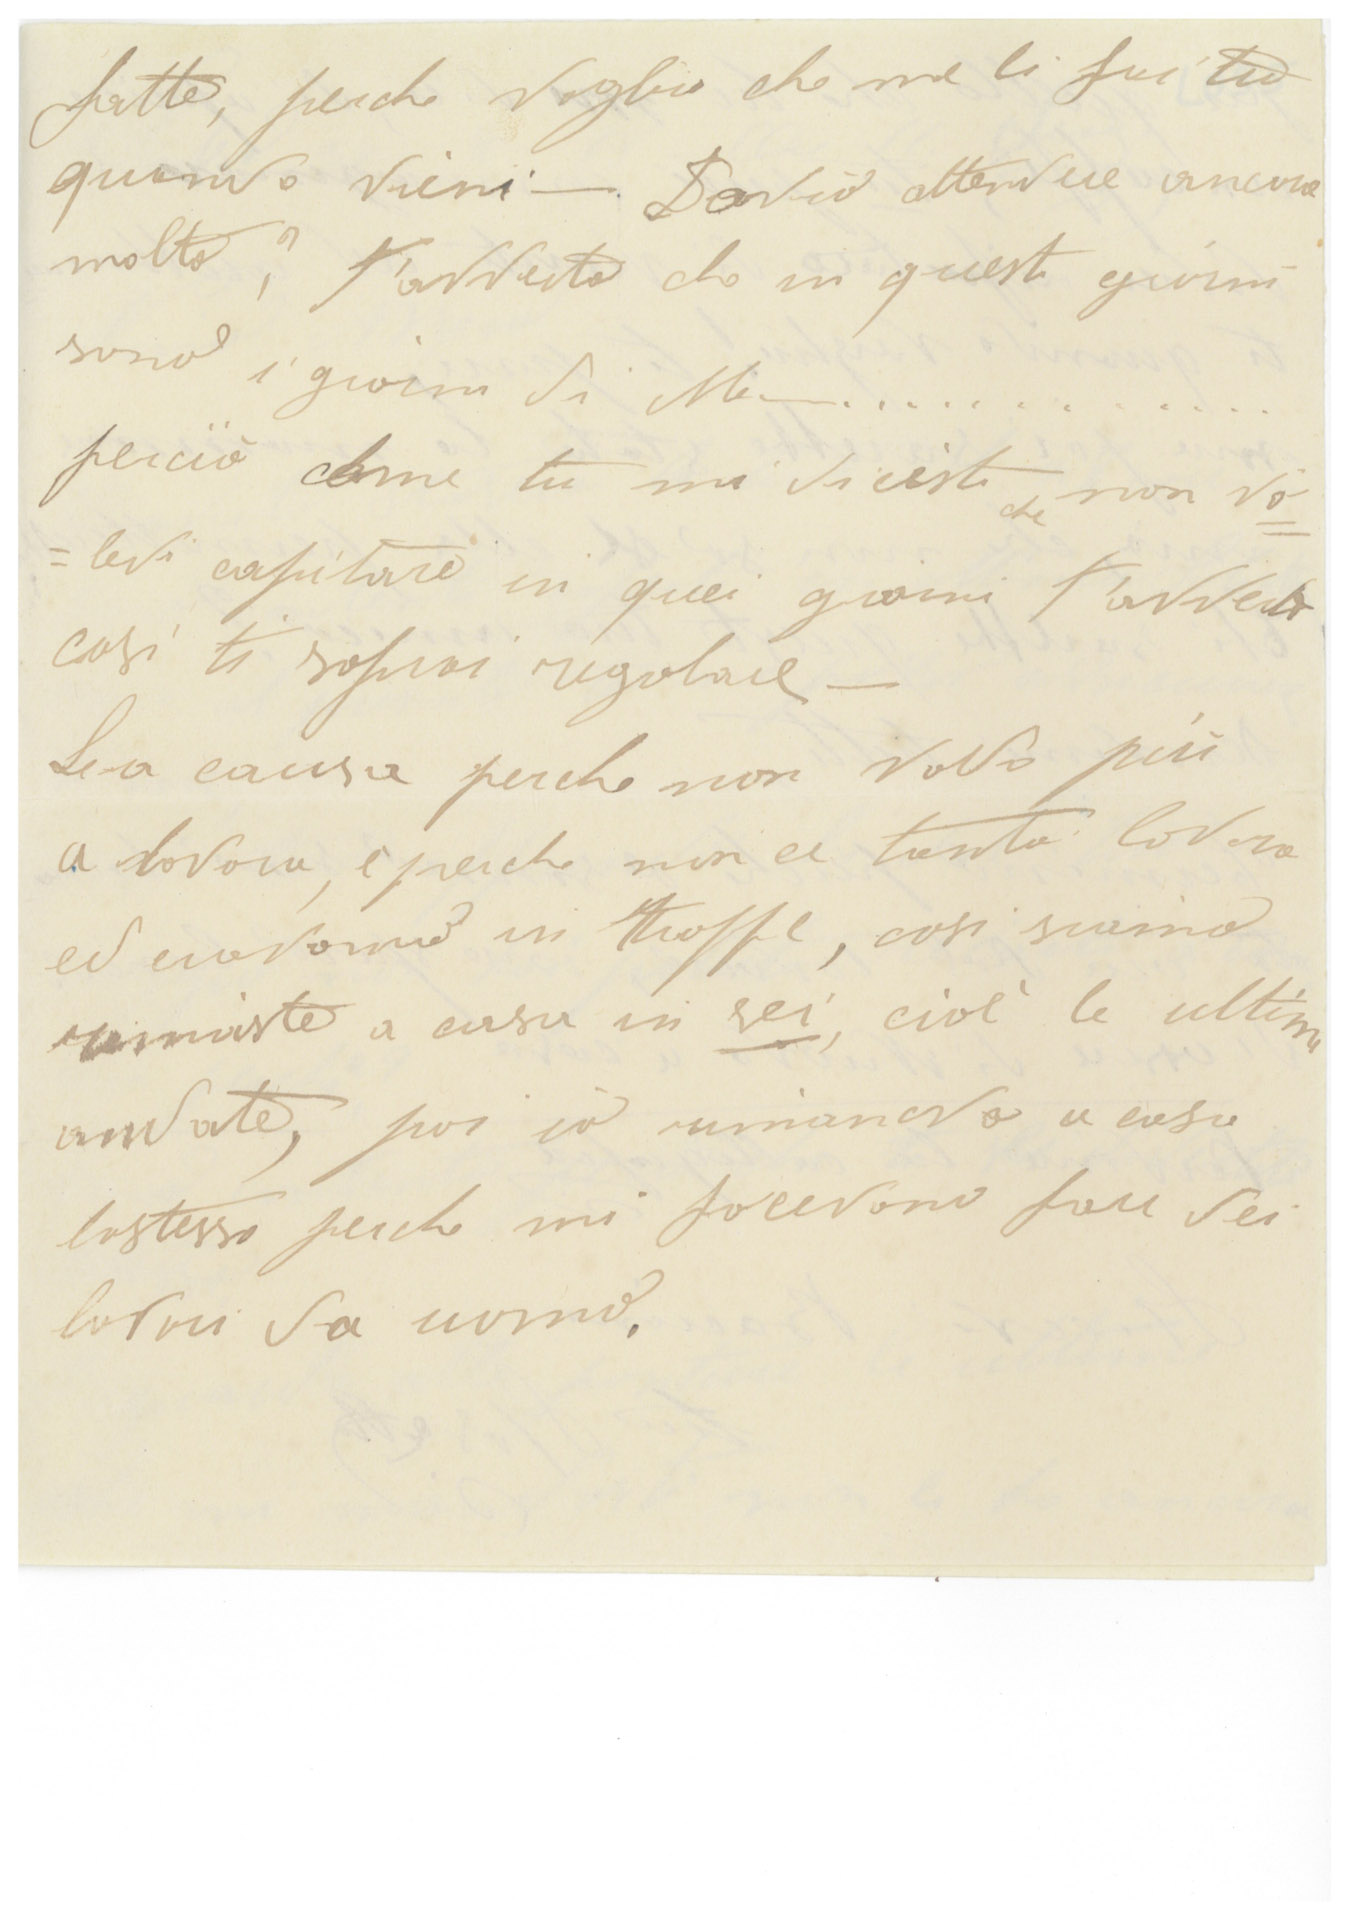 fatte, perche voglio che me li fai tu
quando vieni — Dovrò attendere ancora
molto? T'avverto che in questi giorni
sono i giorni di Me—..............
perciò come tu mi dicesti che non vo=
=levi capitare in quei giorni t'avverto
così ti soprai regolare —
La causa perche non vado più
a lavora, e perche non ce tanto lavora
ed eravamo in troppe, cosi siamo
rimaste a casa in sei, cioè le ultime
andate, poi io rimanevo a casa
lostesso perche mi facevano fare dei
lavori da uomo.